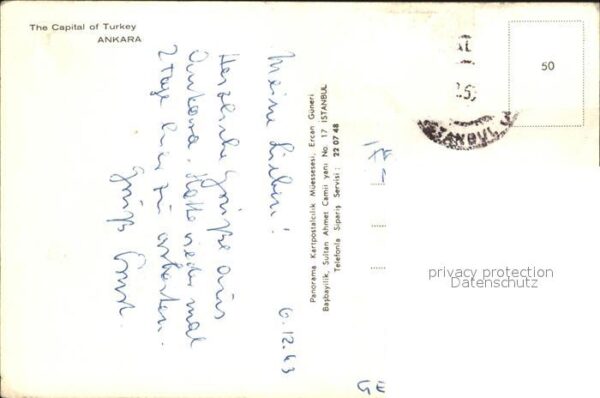 The Capital of Turkey
ANKARA
6.12.63
Meine Lieben!
Herzliche Grüße aus
Ankara. Habe wieder mal
2 Tage hier zu arbeiten.
Gruß Ernst.
Panorama Kartpostalcılık Müessesesi, Ercan Güneri
Başbayilik, Sultan Ahmet Camii yanı No. 17 ISTANBUL
Telefonla Sipariş Servisi : 22 07 48
50
ISTANBUL
privacy protection
Datenschutz
GE